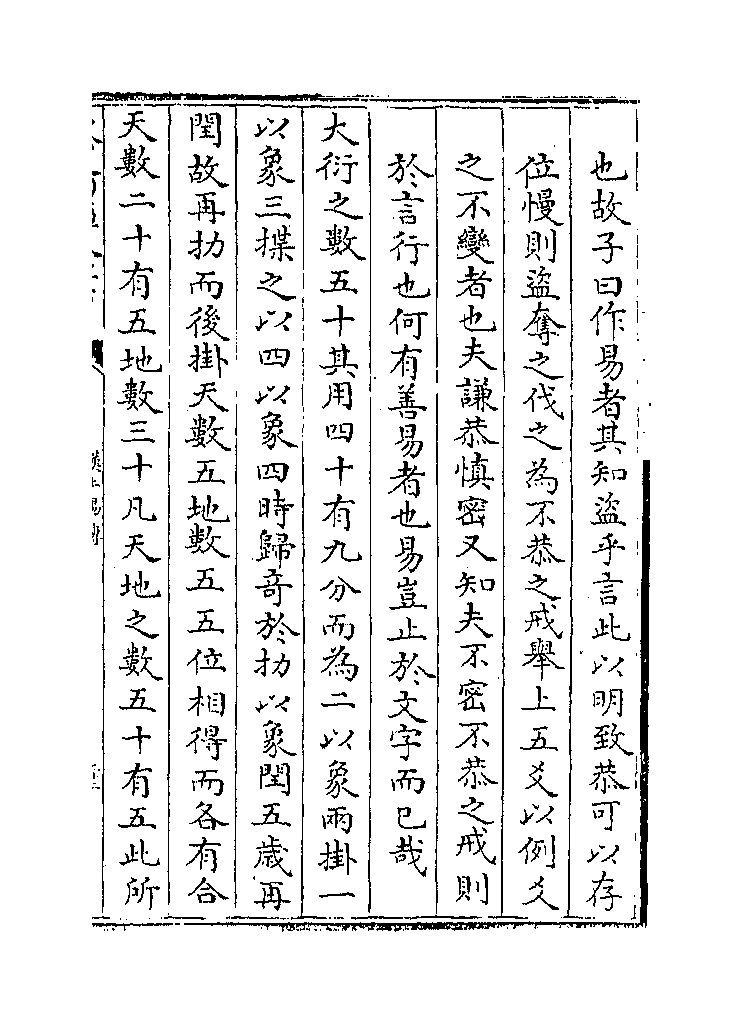 也故子曰作易者其知盜乎言此以明致恭可以存
位慢則盜奪之伐之為不恭之戒舉上五爻以例爻
之不變者也夫謙恭慎密又知夫不密不恭之戒則
於言行也何有善易者也易豈止於文字而已哉
大衍之數五十其用四十有九分而為二以象兩掛一
以象三揲之以四以象四時歸竒於扐以象閏五歲再
閏故再扐而後掛天數五地數五五位相得而各有合
天數二十有五地數三十凡天地之數五十有五此所
漢上易傳